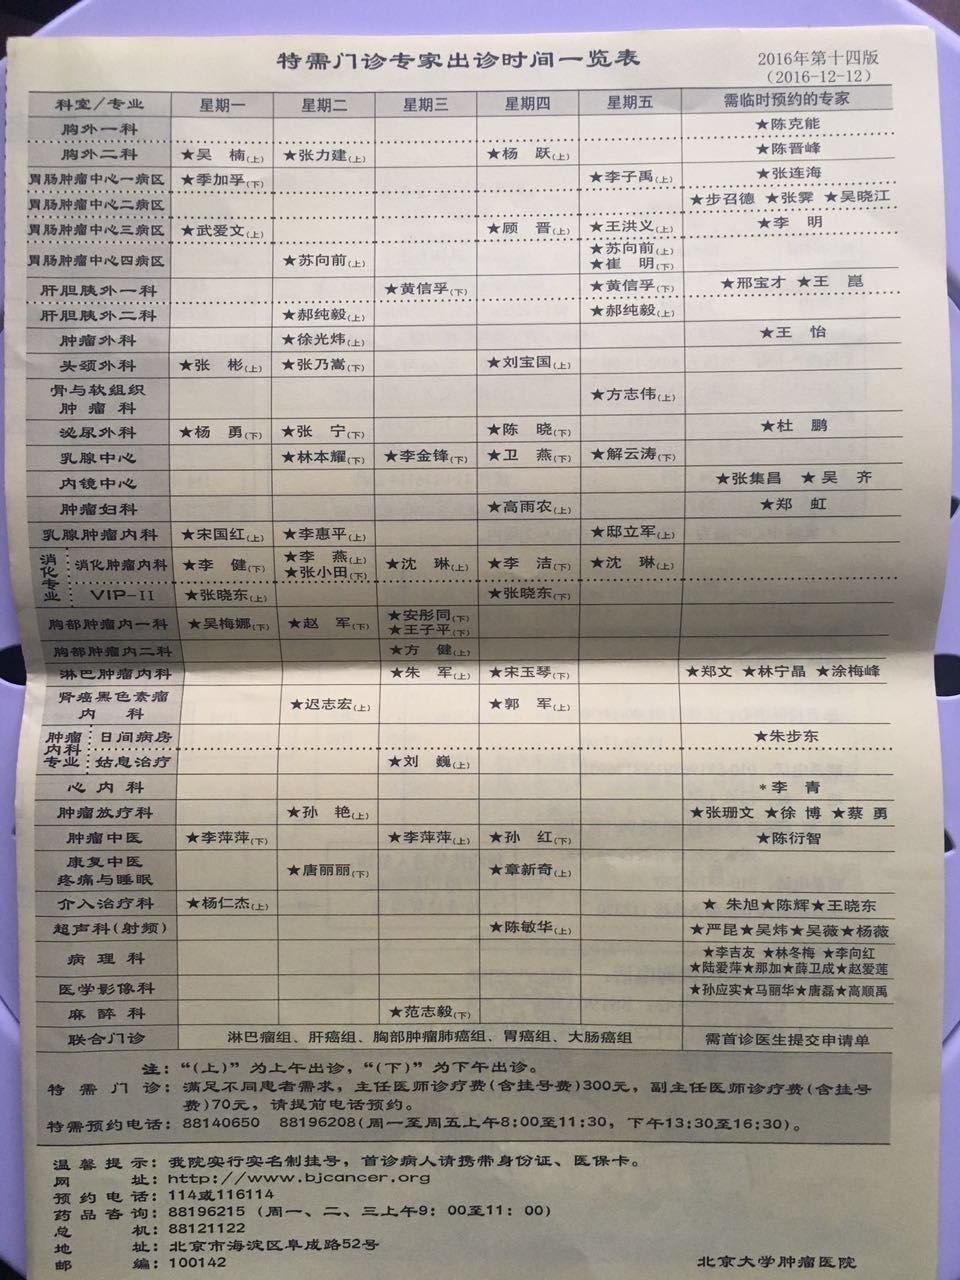 特需门诊专家出诊时间一览表
2016年第十四版
（2016-12-12）
科室/专业 星期一 星期二 星期三 星期四 星期五 需临时预约的专家
胸外一科 ★陈克能
胸外二科 ★吴 楠(上) ★张力建(上) ★杨 跃(上) ★陈晋峰
胃肠肿瘤中心一病区 ★季加孚(下) ★李子禹(上) ★张连海
胃肠肿瘤中心二病区 ★步召德 ★张霁 ★吴晓江
胃肠肿瘤中心三病区 ★武爱文(上) ★顾 晋(上) ★王洪义(上) ★李 明
胃肠肿瘤中心四病区 ★苏向前(上) ★苏向前(上)
★崔 明(下)
肝胆胰外一科 ★黄信孚(下) ★黄信孚(下) ★邢宝才 ★王 崑
肝胆胰外二科 ★郝纯毅(上) ★郝纯毅(上)
肿瘤外科 ★徐光炜(上) ★王 怡
头颈外科 ★张 彬(上) ★张乃嵩(下) ★刘宝国(上)
骨与软组织
肿瘤科 ★方志伟(上)
泌尿外科 ★杨 勇(下) ★张 宁(下) ★陈 晓(下) ★杜 鹏
乳腺中心 ★林本耀(下) ★李金锋(下) ★卫 燕(下) ★解云涛(下)
内镜中心 ★张集昌 ★吴 齐
肿瘤妇科 ★高雨农(上) ★郑 虹
乳腺肿瘤内科 ★宋国红(上) ★李惠平(上) ★邸立军(上)
消化专业 消化肿瘤内科 ★李 健(下) ★李 燕(上) ★沈 琳(上) ★李 洁(下) ★沈 琳(上)
★张小田(下)
VIP-II ★张晓东(上) ★张晓东(下)
胸部肿瘤内一科 ★吴梅娜(下) ★赵 军(下) ★安彤同(下)
★王子平(下)
胸部肿瘤内二科 ★方 健(上)
淋巴肿瘤内科 ★朱 军(上) ★宋玉琴(下) ★郑文 ★林宁晶 ★涂梅峰
肾癌黑色素瘤
内 科 ★迟志宏(上) ★郭 军(上)
肿瘤内科专业 日间病房 ★朱步东
姑息治疗 ★刘 巍(上)
心内科 *李 青
肿瘤放疗科 ★孙 艳(上) ★张珊文 ★徐 博 ★蔡 勇
肿瘤中医 ★李萍萍(下) ★李萍萍(上) ★孙 红(下) ★陈衍智
康复中医
疼痛与睡眠 ★唐丽丽(下) ★章新奇(上)
介入治疗科 ★杨仁杰(上) ★ 朱旭★陈辉★王晓东
超声科(射频) ★陈敏华(上) ★严昆★吴炜★吴薇★杨薇
病理科 ★李吉友 ★林冬梅 ★李向红
★陆爱萍★那加★薛卫成★赵爱莲
医学影像科 ★孙应实★马丽华★唐磊★高顺禹
麻醉科 ★范志毅(下)
联合门诊 淋巴瘤组、肝癌组、胸部肿瘤肺癌组、胃癌组、大肠癌组 需首诊医生提交申请单
注：“(上)”为上午出诊，“(下)”为下午出诊。
特需门诊：满足不同患者需求，主任医师诊疗费(含挂号费)300元，副主任医师诊疗费(含挂号
费)70元，请提前电话预约。
特需预约电话：88140650 88196208(周一至周五上午8:00至11:30，下午13:30至16:30)。
温馨提示：我院实行实名制挂号，首诊病人请携带身份证、医保卡。
网 址：http://www.bjcancer.org
预约电话：114或116114
药品咨询：88196215（周一、二、三上午9：00至11：00）
总 机：88121122
地 址：北京市海淀区阜成路52号
邮 编：100142
北京大学肿瘤医院